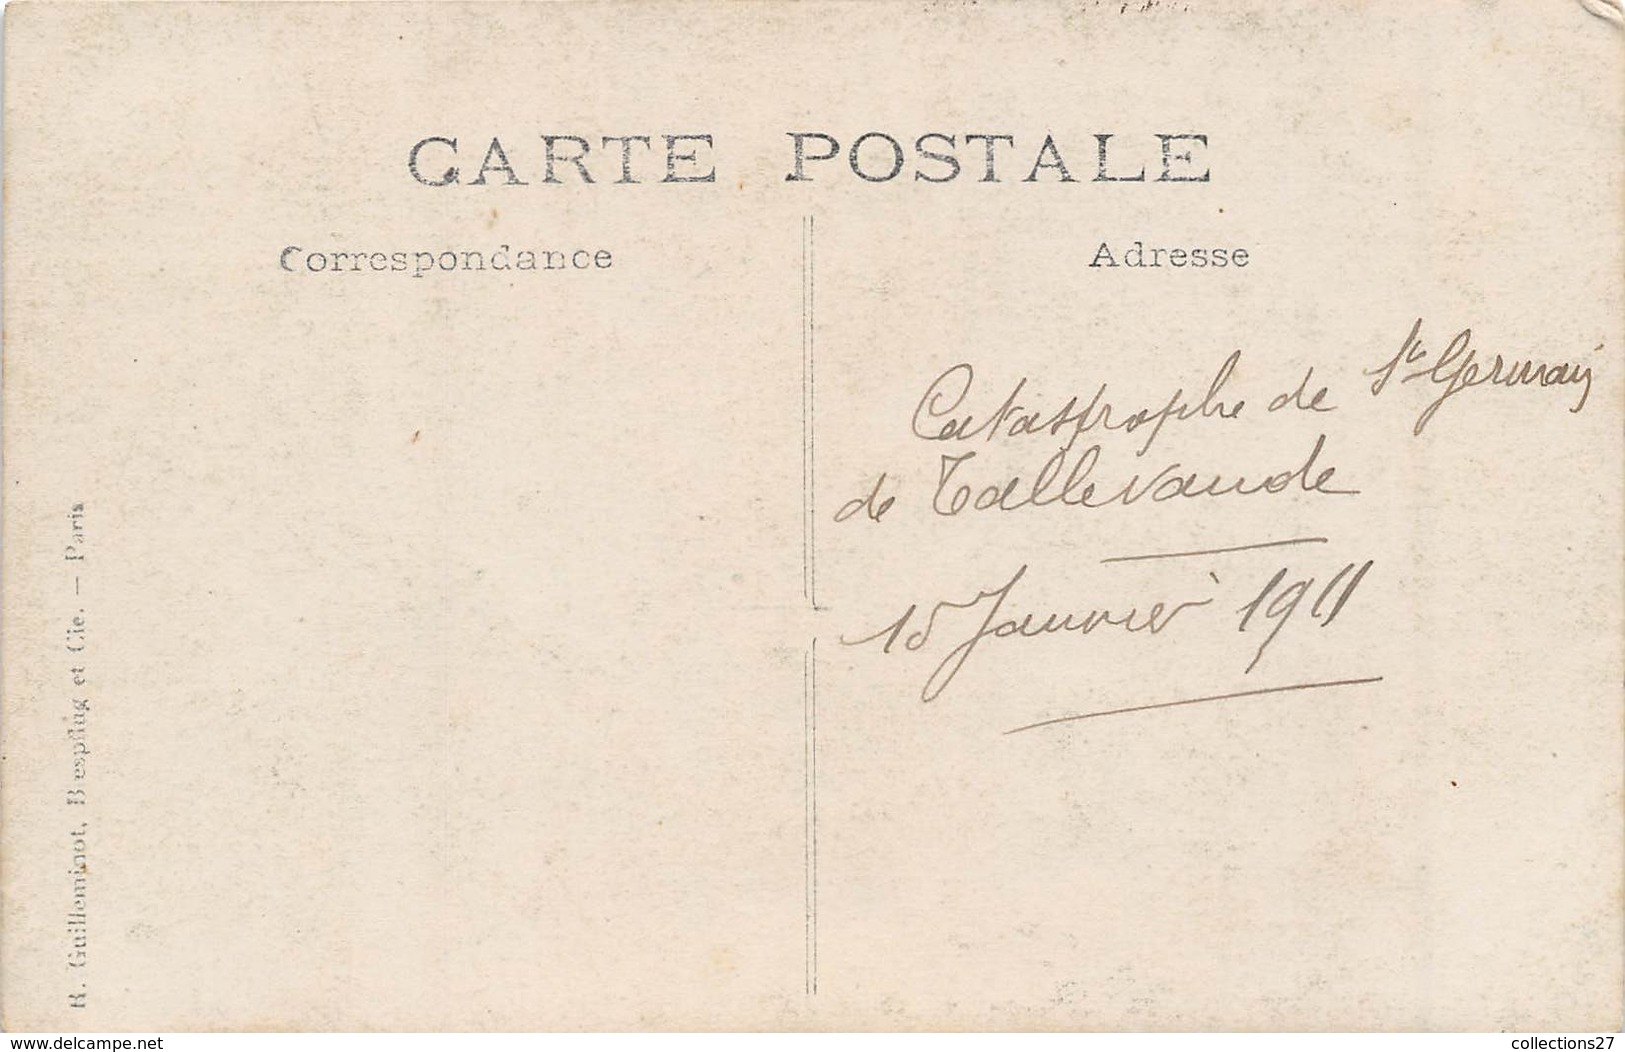 CARTE POSTALE
Correspondance
Adresse
Catastrophe de St Germain
de Tallevaude
15 Janvier 1911
R. Guilleminot, Bœspflug et Cie. — Paris
www.delcampe.net
collections27